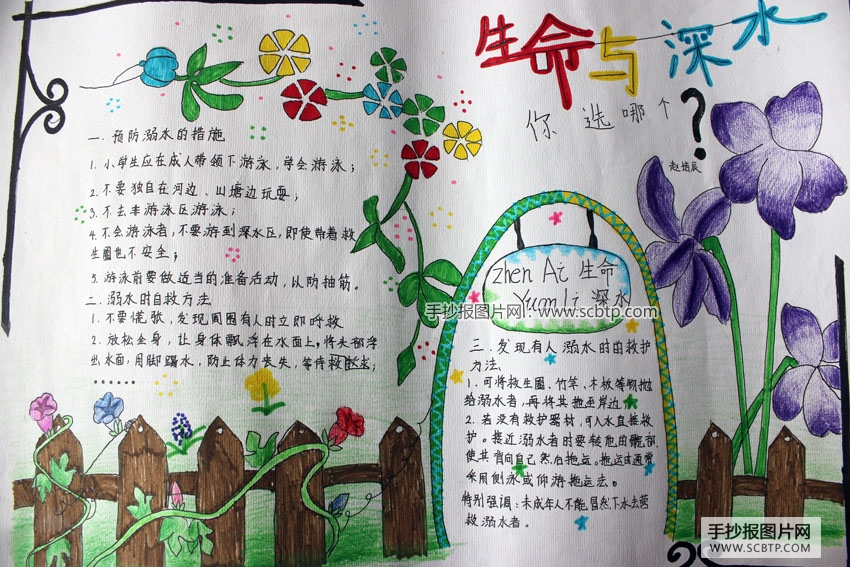 生命与深水
你选哪个?
赵培辰
一.预防溺水的措施
1.小学生应在成人带领下游泳,学会游泳;
2.不要独自在河边、山塘边玩耍;
3.不去非游泳区游泳;
4.不会游泳者,不要游到深水区,即使带着救
生圈也不安全;
5.游泳前要做适当的准备活动,以防抽筋。
二.溺水时自救方法
1.不要慌张,发现周围有人时立即呼救
2.放松全身,让身体飘浮在水面上,将头部浮
出水面,用脚踢水,防止体力丧失,等待救援;
......
zhen Ai 生命
Yuan Li 深水
手抄报图片网:www.scbtp.com
三.发现有人溺水时的救护
方法.
1.可将救生圈、竹竿、木板等物抛
给溺水者,再将其拖至岸边;
2.若没有救护器材,可入水直接救
护。接近溺水者时要转他的髋部,
使其背向自己然后拖运。拖运时通常
采用侧泳或仰游拖运法。
特别强调:未成年人不能冒然下水去营
救溺水者。
手抄报图片网
WWW.SCBTP.COM
手抄报图片网
WWW.SCBTP.COM